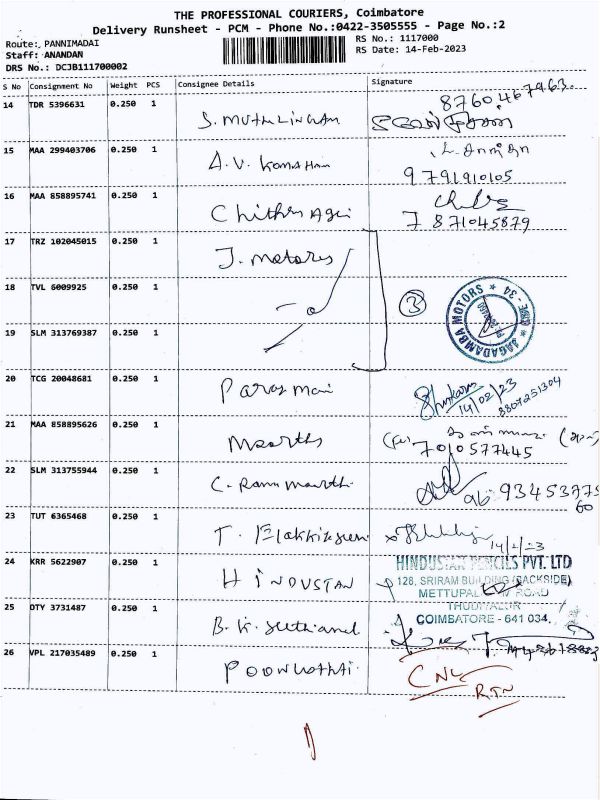 THE PROFESSIONAL COURIERS, Coimbatore
Delivery Runsheet - PCM - Phone No.:0422-3505555 - Page No.:2
Route:, PANNIMADAI
RS No.: 1117000
Staff: ANANDAN
RS Date: 14-Feb-2023
DRS No.: DCJB111700002
S No Consignment No Weight PCS Consignee Details Signature
14 TDR 5396631 0.250 1 S. MUTHULINGAM 8760467963
15 MAA 299403706 0.250 1 A.V. Komathan
9791910105
16 MAA 858895741 0.250 1 Chithra Agen
7871045879
17 TRZ 102045015 0.250 1 J. Motors
18 TVL 6009925 0.250 1 3
JAGADAMBA MOTORS
CBE - 34
19 SLM 313769387 0.250 1
20 TCG 20048681 0.250 1 Paras mai
14/02/23
8807251304
21 MAA 858895626 0.250 1 Moorthy
7010577445
22 SLM 313755944 0.250 1 C. Ram moorthi
93453775
60
23 TUT 6365468 0.250 1 T.
14/2/23
24 KRR 5622907 0.250 1 HINDUSTAN
HINDUSTAN PENCILS PVT. LTD
128, SRIRAM BUILDING (BACKSIDE)
METTUPALAYAM ROAD
THUDIYALUR
COIMBATORE - 641 034.
25 OTY 3731487 0.250 1 B. K.
26 VPL 217035489 0.250 1
CNL
RTN